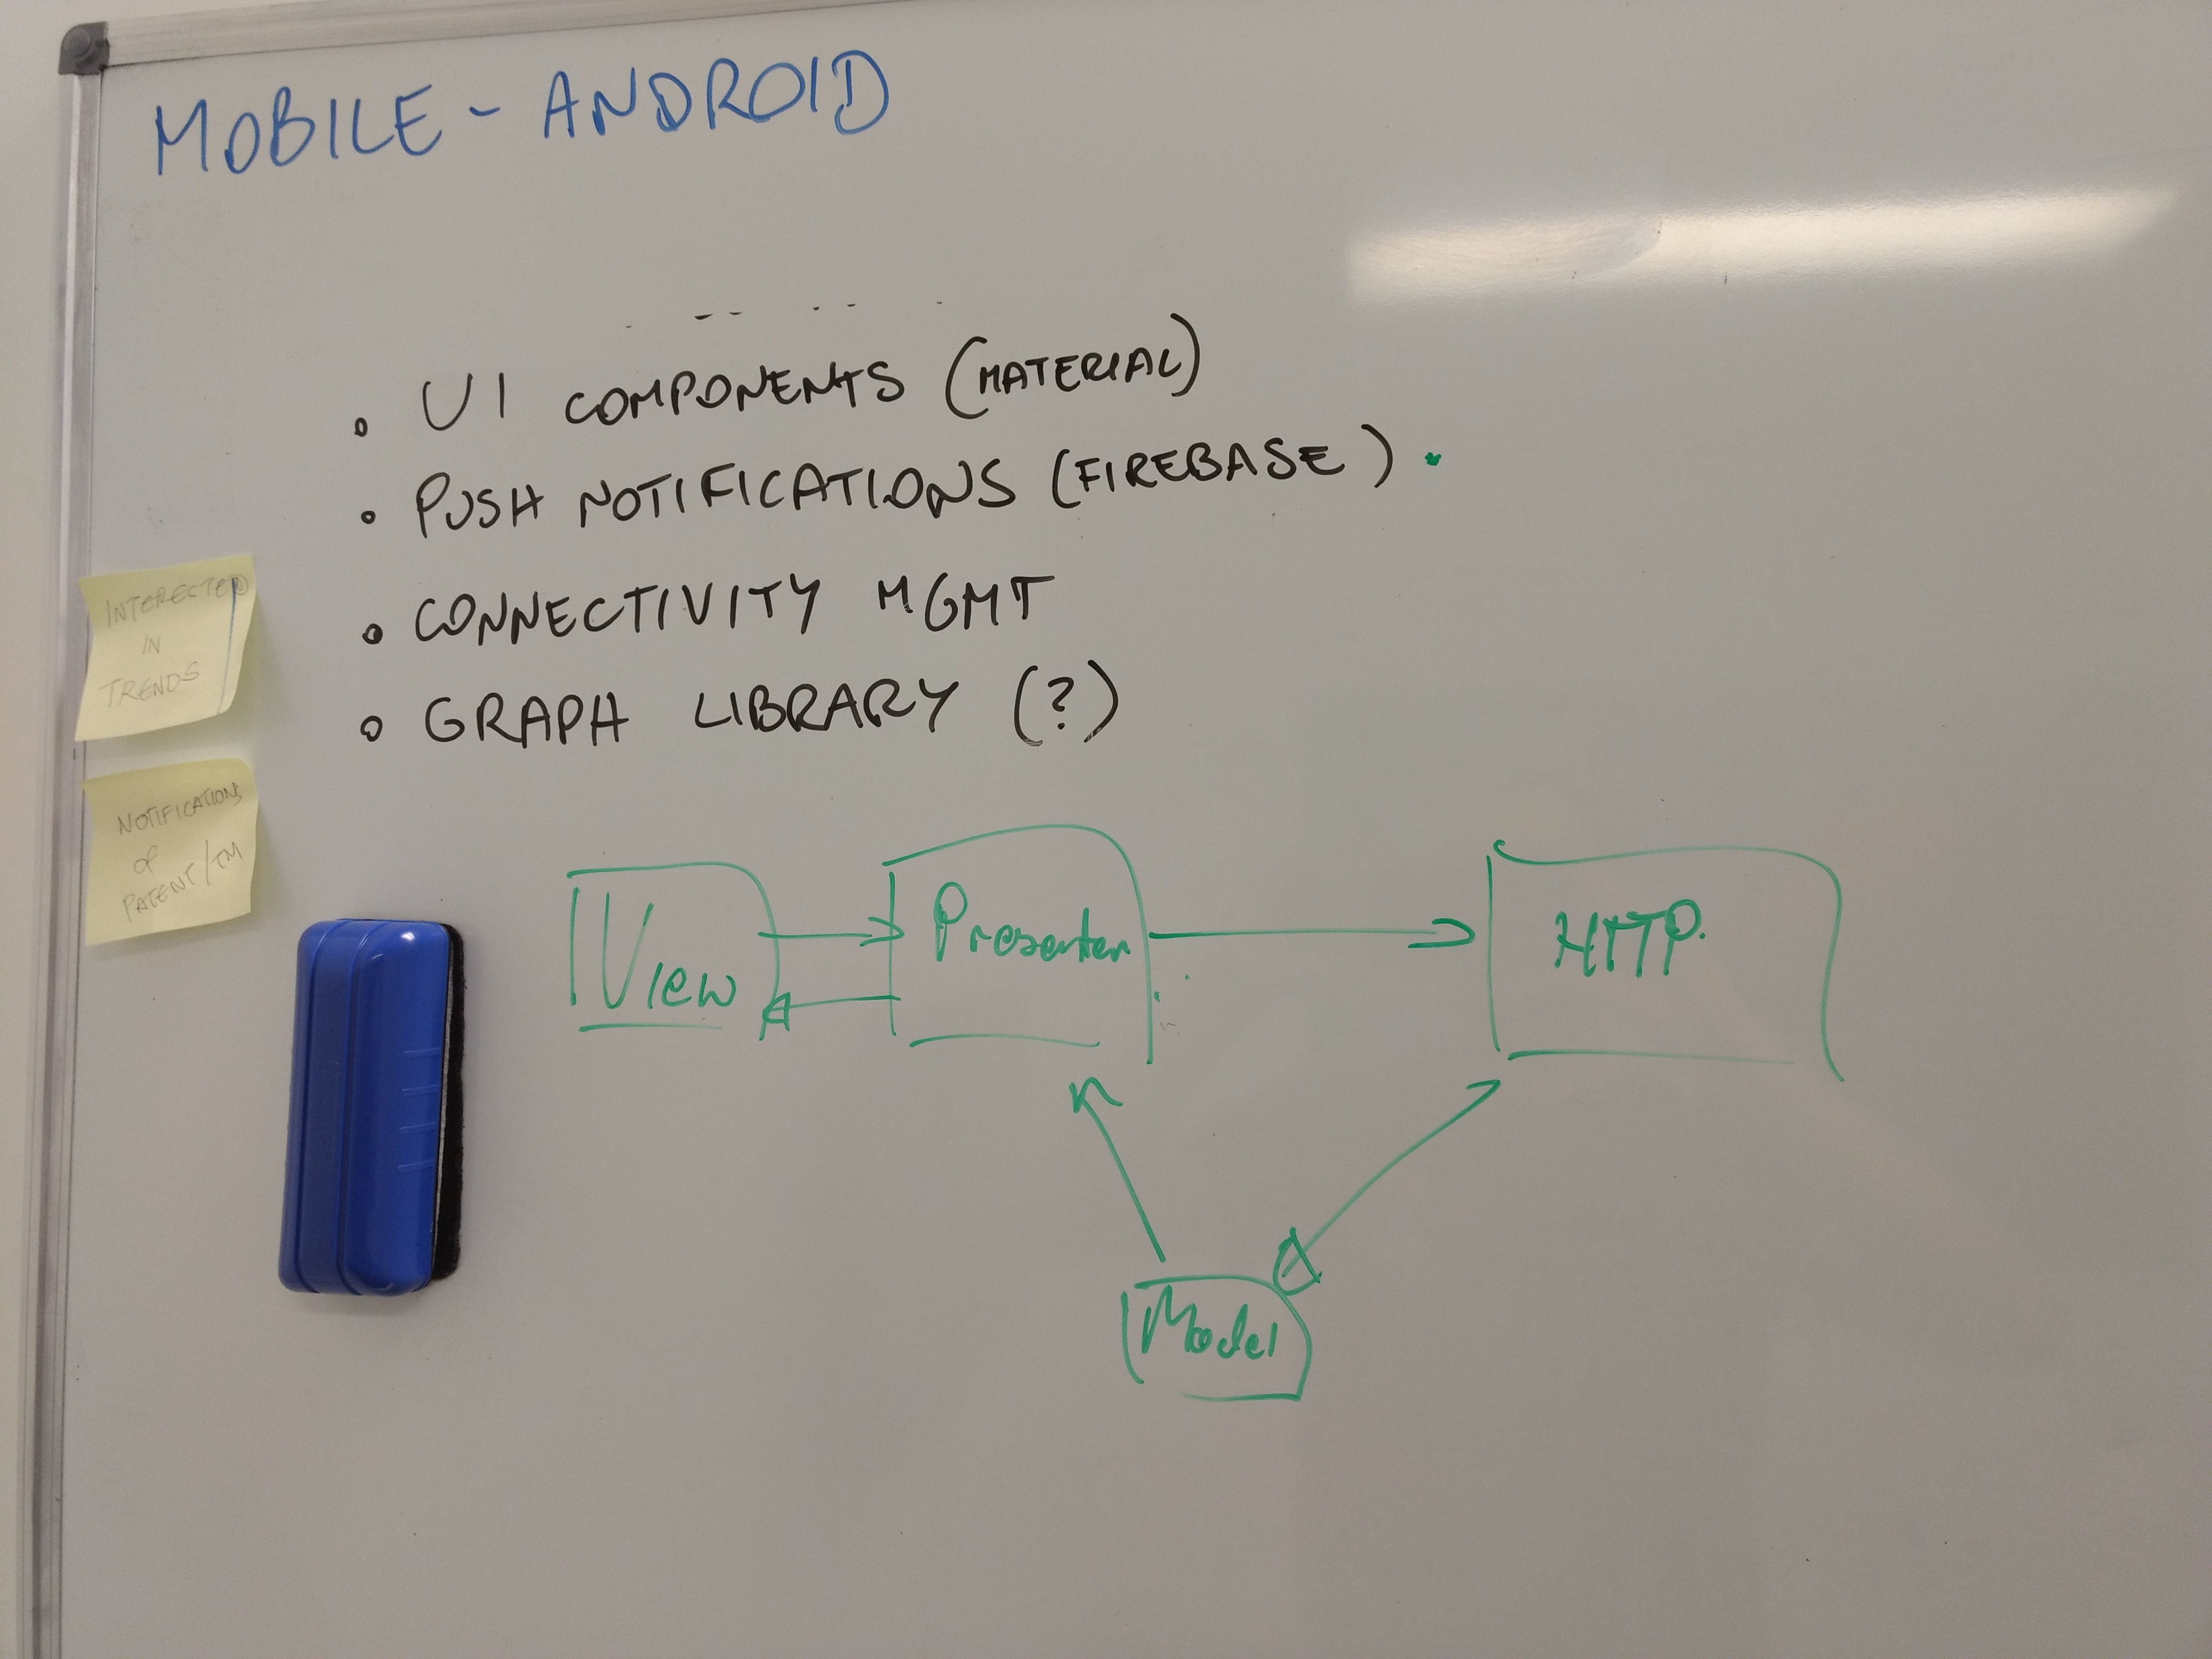 MOBILE - ANDROID
• UI COMPONENTS (MATERIAL)
• PUSH NOTIFICATIONS (FIREBASE)
• CONNECTIVITY MGMT
• GRAPH LIBRARY (?)
INTERECTED
IN
TRENDS
NOTIFICATIONS
of
PATENT/TM
View
Presenter
HTTP.
Model